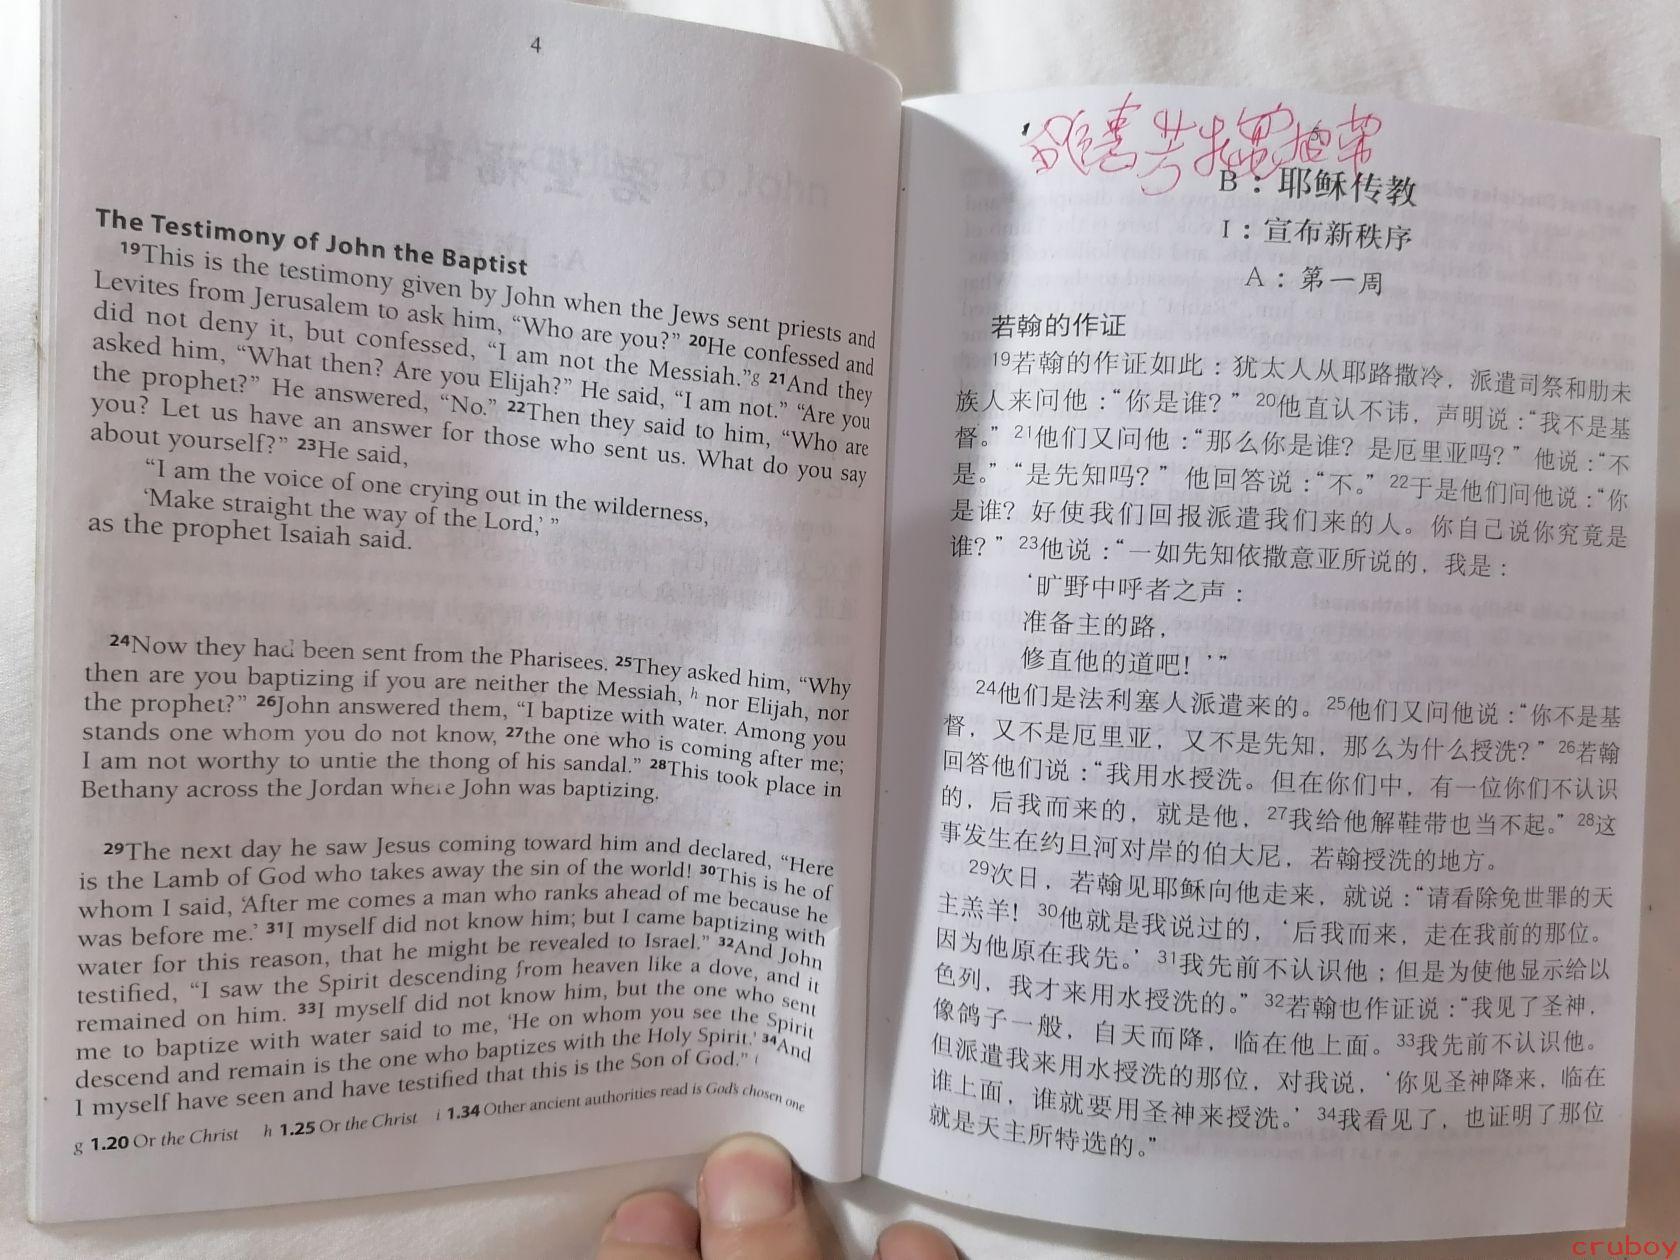 4
The Testimony of John the Baptist
19This is the testimony given by John when the Jews sent priests and
Levites from Jerusalem to ask him, “Who are you?” 20He confessed and
did not deny it, but confessed, “I am not the Messiah.”g 21And they
asked him, “What then? Are you Elijah?” He said, “I am not.” “Are you
the prophet?” He answered, “No.” 22Then they said to him, “Who are
you? Let us have an answer for those who sent us. What do you say
about yourself?” 23He said,
“I am the voice of one crying out in the wilderness,
‘Make straight the way of the Lord,’ ”
as the prophet Isaiah said.
24Now they had been sent from the Pharisees. 25They asked him, “Why
then are you baptizing if you are neither the Messiah, h nor Elijah, nor
the prophet?” 26John answered them, “I baptize with water. Among you
stands one whom you do not know, 27the one who is coming after me;
I am not worthy to untie the thong of his sandal.” 28This took place in
Bethany across the Jordan where John was baptizing.
29The next day he saw Jesus coming toward him and declared, “Here
is the Lamb of God who takes away the sin of the world! 30This is he of
whom I said, ‘After me comes a man who ranks ahead of me because he
was before me.’ 31I myself did not know him; but I came baptizing with
water for this reason, that he might be revealed to Israel.” 32And John
testified, “I saw the Spirit descending from heaven like a dove, and it
remained on him. 33I myself did not know him, but the one who sent
me to baptize with water said to me, ‘He on whom you see the Spirit
descend and remain is the one who baptizes with the Holy Spirit.’ 34And
I myself have seen and have testified that this is the Son of God.” i
g 1.20 Or the Christ h 1.25 Or the Christ i 1.34 Other ancient authorities read is God's chosen one
B：耶稣传教
I：宣布新秩序
A：第一周
若翰的作证
19若翰的作证如此：犹太人从耶路撒冷，派遣司祭和肋未
族人来问他：“你是谁？” 20他直认不讳，声明说：“我不是基
督。” 21他们又问他：“那么你是谁？是厄里亚吗？” 他说：“不
是。” “是先知吗？” 他回答说：“不。” 22于是他们问他说：“你
是谁？好使我们回报派遣我们来的人。你自己说你究竟是
谁？” 23他说：“一如先知依撒意亚所说的，我是：
‘旷野中呼者之声：
准备主的路，
修直他的道吧！’”
24他们是法利塞人派遣来的。25他们又问他说：“你不是基
督，又不是厄里亚，又不是先知，那么为什么授洗？” 26若翰
回答他们说：“我用水授洗。但在你们中，有一位你们不认识
的，后我而来的，就是他，27我给他解鞋带也当不起。” 28这
事发生在约旦河对岸的伯大尼，若翰授洗的地方。
29次日，若翰见耶稣向他走来，就说：“请看除免世罪的天
主羔羊！30他就是我说过的，‘后我而来，走在我前的那位。
因为他原在我先。’ 31我先前不认识他；但是为使他显示给以
色列，我才来用水授洗的。” 32若翰也作证说：“我见了圣神，
像鸽子一般，自天而降，临在他上面。33我先前不认识他。
但派遣我来用水授洗的那位，对我说，‘你见圣神降来，临在
谁上面，谁就要用圣神来授洗。’ 34我看见了，也证明了那位
就是天主所特选的。”
cruboy